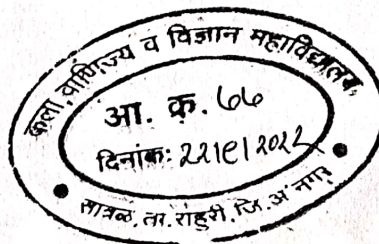 कला, वाणिज्य व विज्ञान महाविद्यालय,
आ. क्र. ७७
दिनांक: 22/9/2022
सात्रळ, ता. राहुरी, जि. अ'नगर